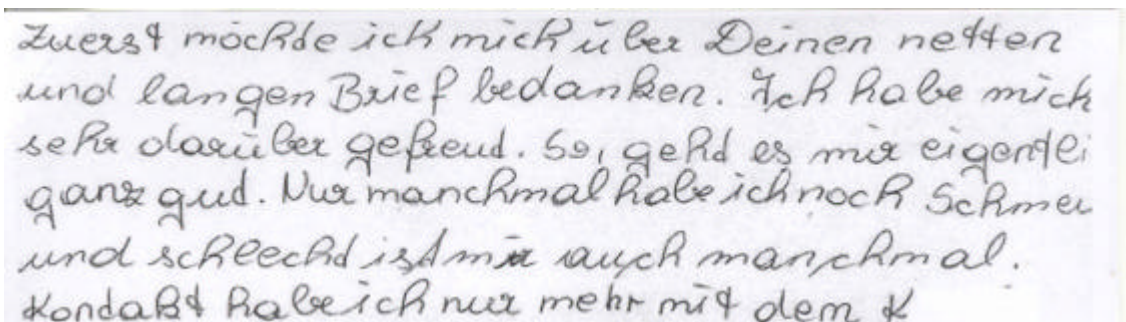 Zuerst möchde ich mich über Deinen netten
und langen Brief bedanken. Ich habe mich
sehr darüber gefreud. So, gehd es mir eigentli
ganz gud. Nur manchmal habe ich noch Schmer
und schlechd ist mir auch manchmal.
Kondakt habe ich nur mehr mit dem K